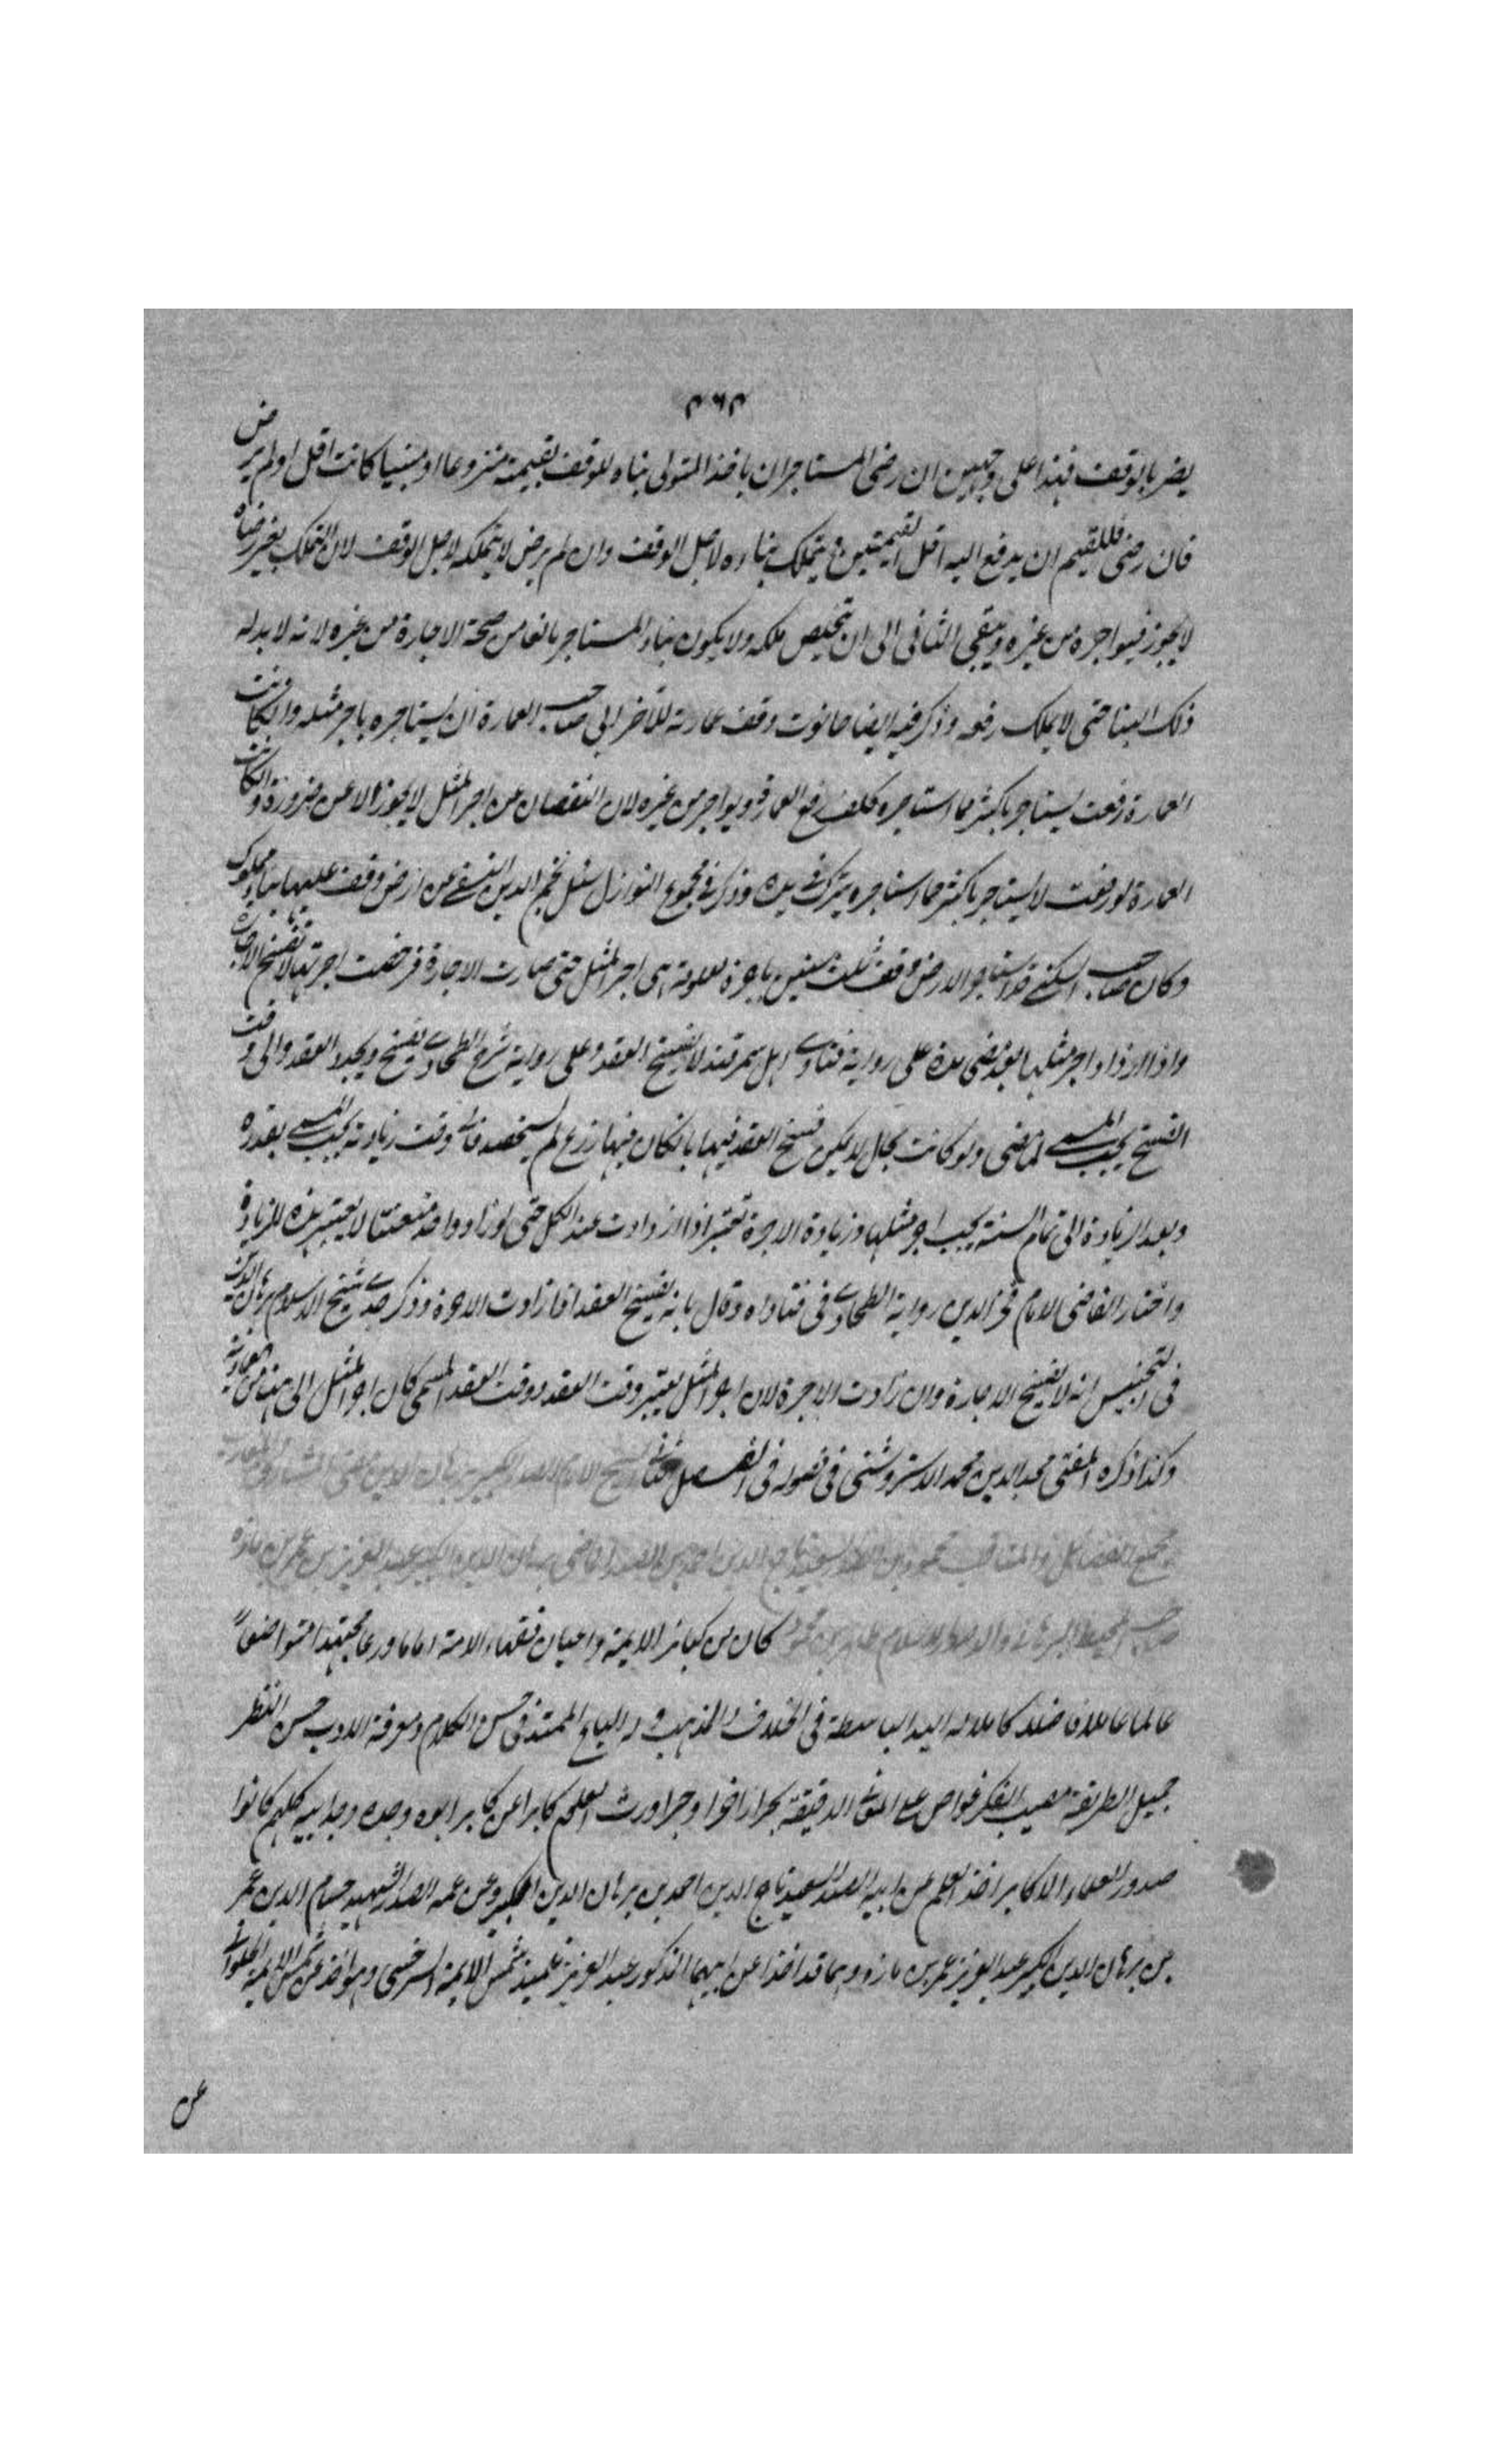 ۴۶۴
يضر بالوقف فهذا على وجهين ان رضى المستاجر ان ياخذ المتولى بناه للوقف بقيمته منزوعا او مبنيا كانت اقل او لم يرض
فان رضى فللقيم ان يدفع اليه اقل القيمتين ويتملك بناءه لاجل الوقف وان لم يرض لا يتملكه لاجل الوقف لان التملك بغير رضاه
لا يجوز فيواجره من غيره ويبقى الثانى الى ان يتخلص ملكه ولا يكون بناء المستاجر مانعا من صحة الاجارة من غيره لانه لا يد له
ذلك البنا حتى لا يملك رفعه وذكر فيه ايضا حانوت وقف عمارته للآخر ابى صاحب العمارة ان يستاجره باجر مثله وان كانت
العمارة رفعت يستاجر باكثر مما استاجره كلف رفع العمارة ويواجر من غيره لان النقصان عن اجر المثل لا يجوز الا عن ضرورة وان كانت
العمارة لو رفعت لا يستاجر باكثر مما استاجره يترك فى يده وذكر فى مجموع النوازل سئل نجم الدين النسفى عن ارض وقف عليها بناء مملوك
وكان صاحب السكنى قد استاجر الارض وقف ثلث سنين باجرة معلومة هى اجر المثل حتى صارت الاجارة فرخصت اجرتها لا تفسخ الاجارة
واذا ازداد اجر مثلها بعد مضى مدة على رواية فتاوى اهل سمرقند لا يفسخ العقد وعلى رواية شرح الطحاوى يفسخ ويجدد العقد والى وقت
الفسخ يجب المسمى لما مضى ولو كانت بحال لا يمكن فسخ العقد فيها بان كان فيها زرع لم يستحصد فالى وقت زيادته يجب المسمى بقدره
وبعد الزيادة الى تمام السنة يجب اجر مثلها وزيادة الاجرة تعتبر اذا ازدادت عند الكل حتى لو زاد واحد متعنتا لا يعتبر هذه الزيادة
واختار القاضى الامام فخر الدين رواية الطحاوى فى فتاواه وقال بانه يفسخ العقد اذا زادت الاجرة وذكر جدى شيخ الاسلام برهان الدين
فى التجنيس انه لا يفسخ الاجارة وان زادت الاجرة لان اجر المثل يعتبر وقت العقد ووقت العقد المسمى كان اجر المثل الى هنا من فوايده
وكذا ذكره المفتى مجد الدين محمد الاستروشنى فى فصوله فى الفصل الشيخ الامام الصدر الكبير برهان الدين
مجمع الفضائل والمناقب محمود بن الصدر السعيد تاج الدين احمد بن الصدر الماضى برهان الدين الكبير عبد العزيز بن عمر بن مازه
صاحب المحيط البرهانى والد صدر الاسلام طاهر بن محمود كان من كبائر الايمة واعيان فقهاء الامة اماما ورعا مجتهدا متواضعاً
عالما عاملا فاضلا كاملا له اليد الباسطة فى الخلاف والمذهب وله الباع الممتد فى حسن الكلام ومعرفة الادب حسن النظر
جميل الطريقة مصيب الفكر غواص على المعانى الدقيقة بحرا زاخرا وحبرا ورث العلم كابرا عن كابر ابوه وجده وجد ابيه كلهم كانوا
صدور العلماء الاكابر اخذ العلم عن ابيه الصدر السعيد تاج الدين احمد بن برهان الدين الكبير وعن عمه الصدر الشهيد حسام الدين عمر
بن برهان الدين الكبير عبد العزيز عمر بن مازه وهما قد اخذا عن ابيهما المذكور عبد العزيز تلميذ شمس الايمة السرخسى وهو اخذ عن شمس الايمة الحلوانى
عن